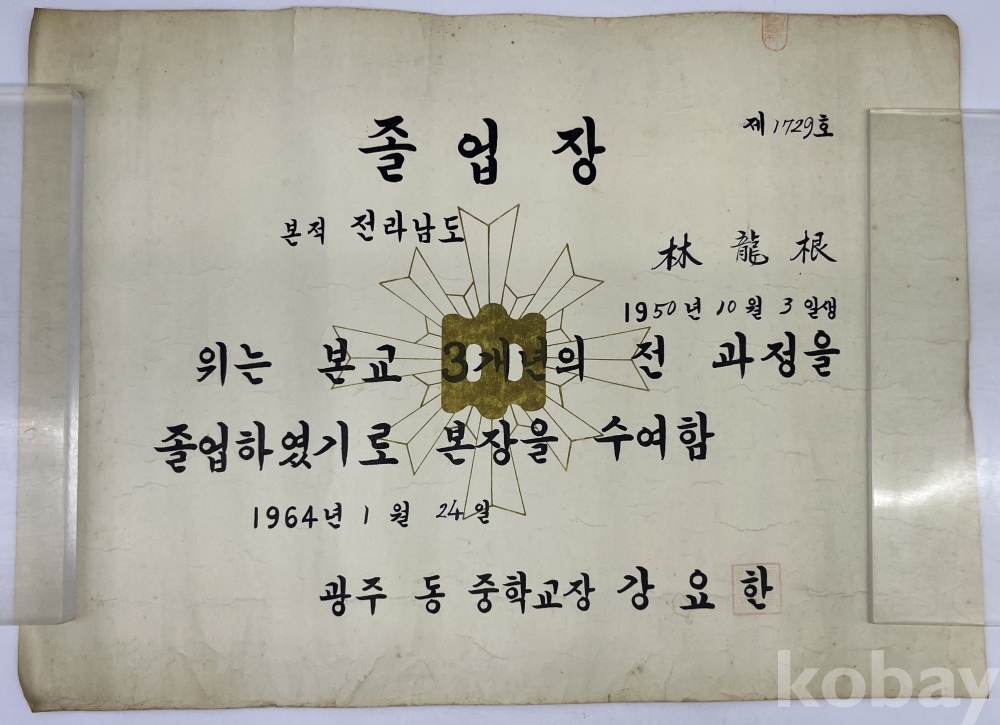 제1729호
졸업장
본적 전라남도
林龍根
1950년 10월 3일생
위는 본교 3개년의 전 과정을
졸업하였기로 본장을 수여함
1964년 1월 24일
광주 동 중학교장 강요한
kobay